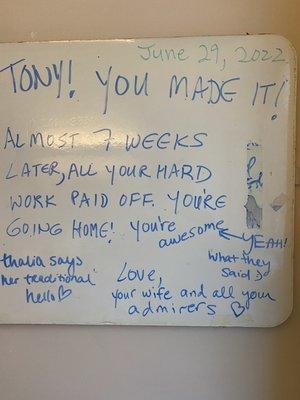 June 29, 2022
TONY! YOU MADE IT!
ALMOST 7 WEEKS
LATER, ALL YOUR HARD
WORK PAID OFF. YOU'RE
GOING HOME! you're
awesome
YEAH!
what they
said :)
thalia says
her traditional
hello ♡
Love,
your wife and all your
admirers ♡